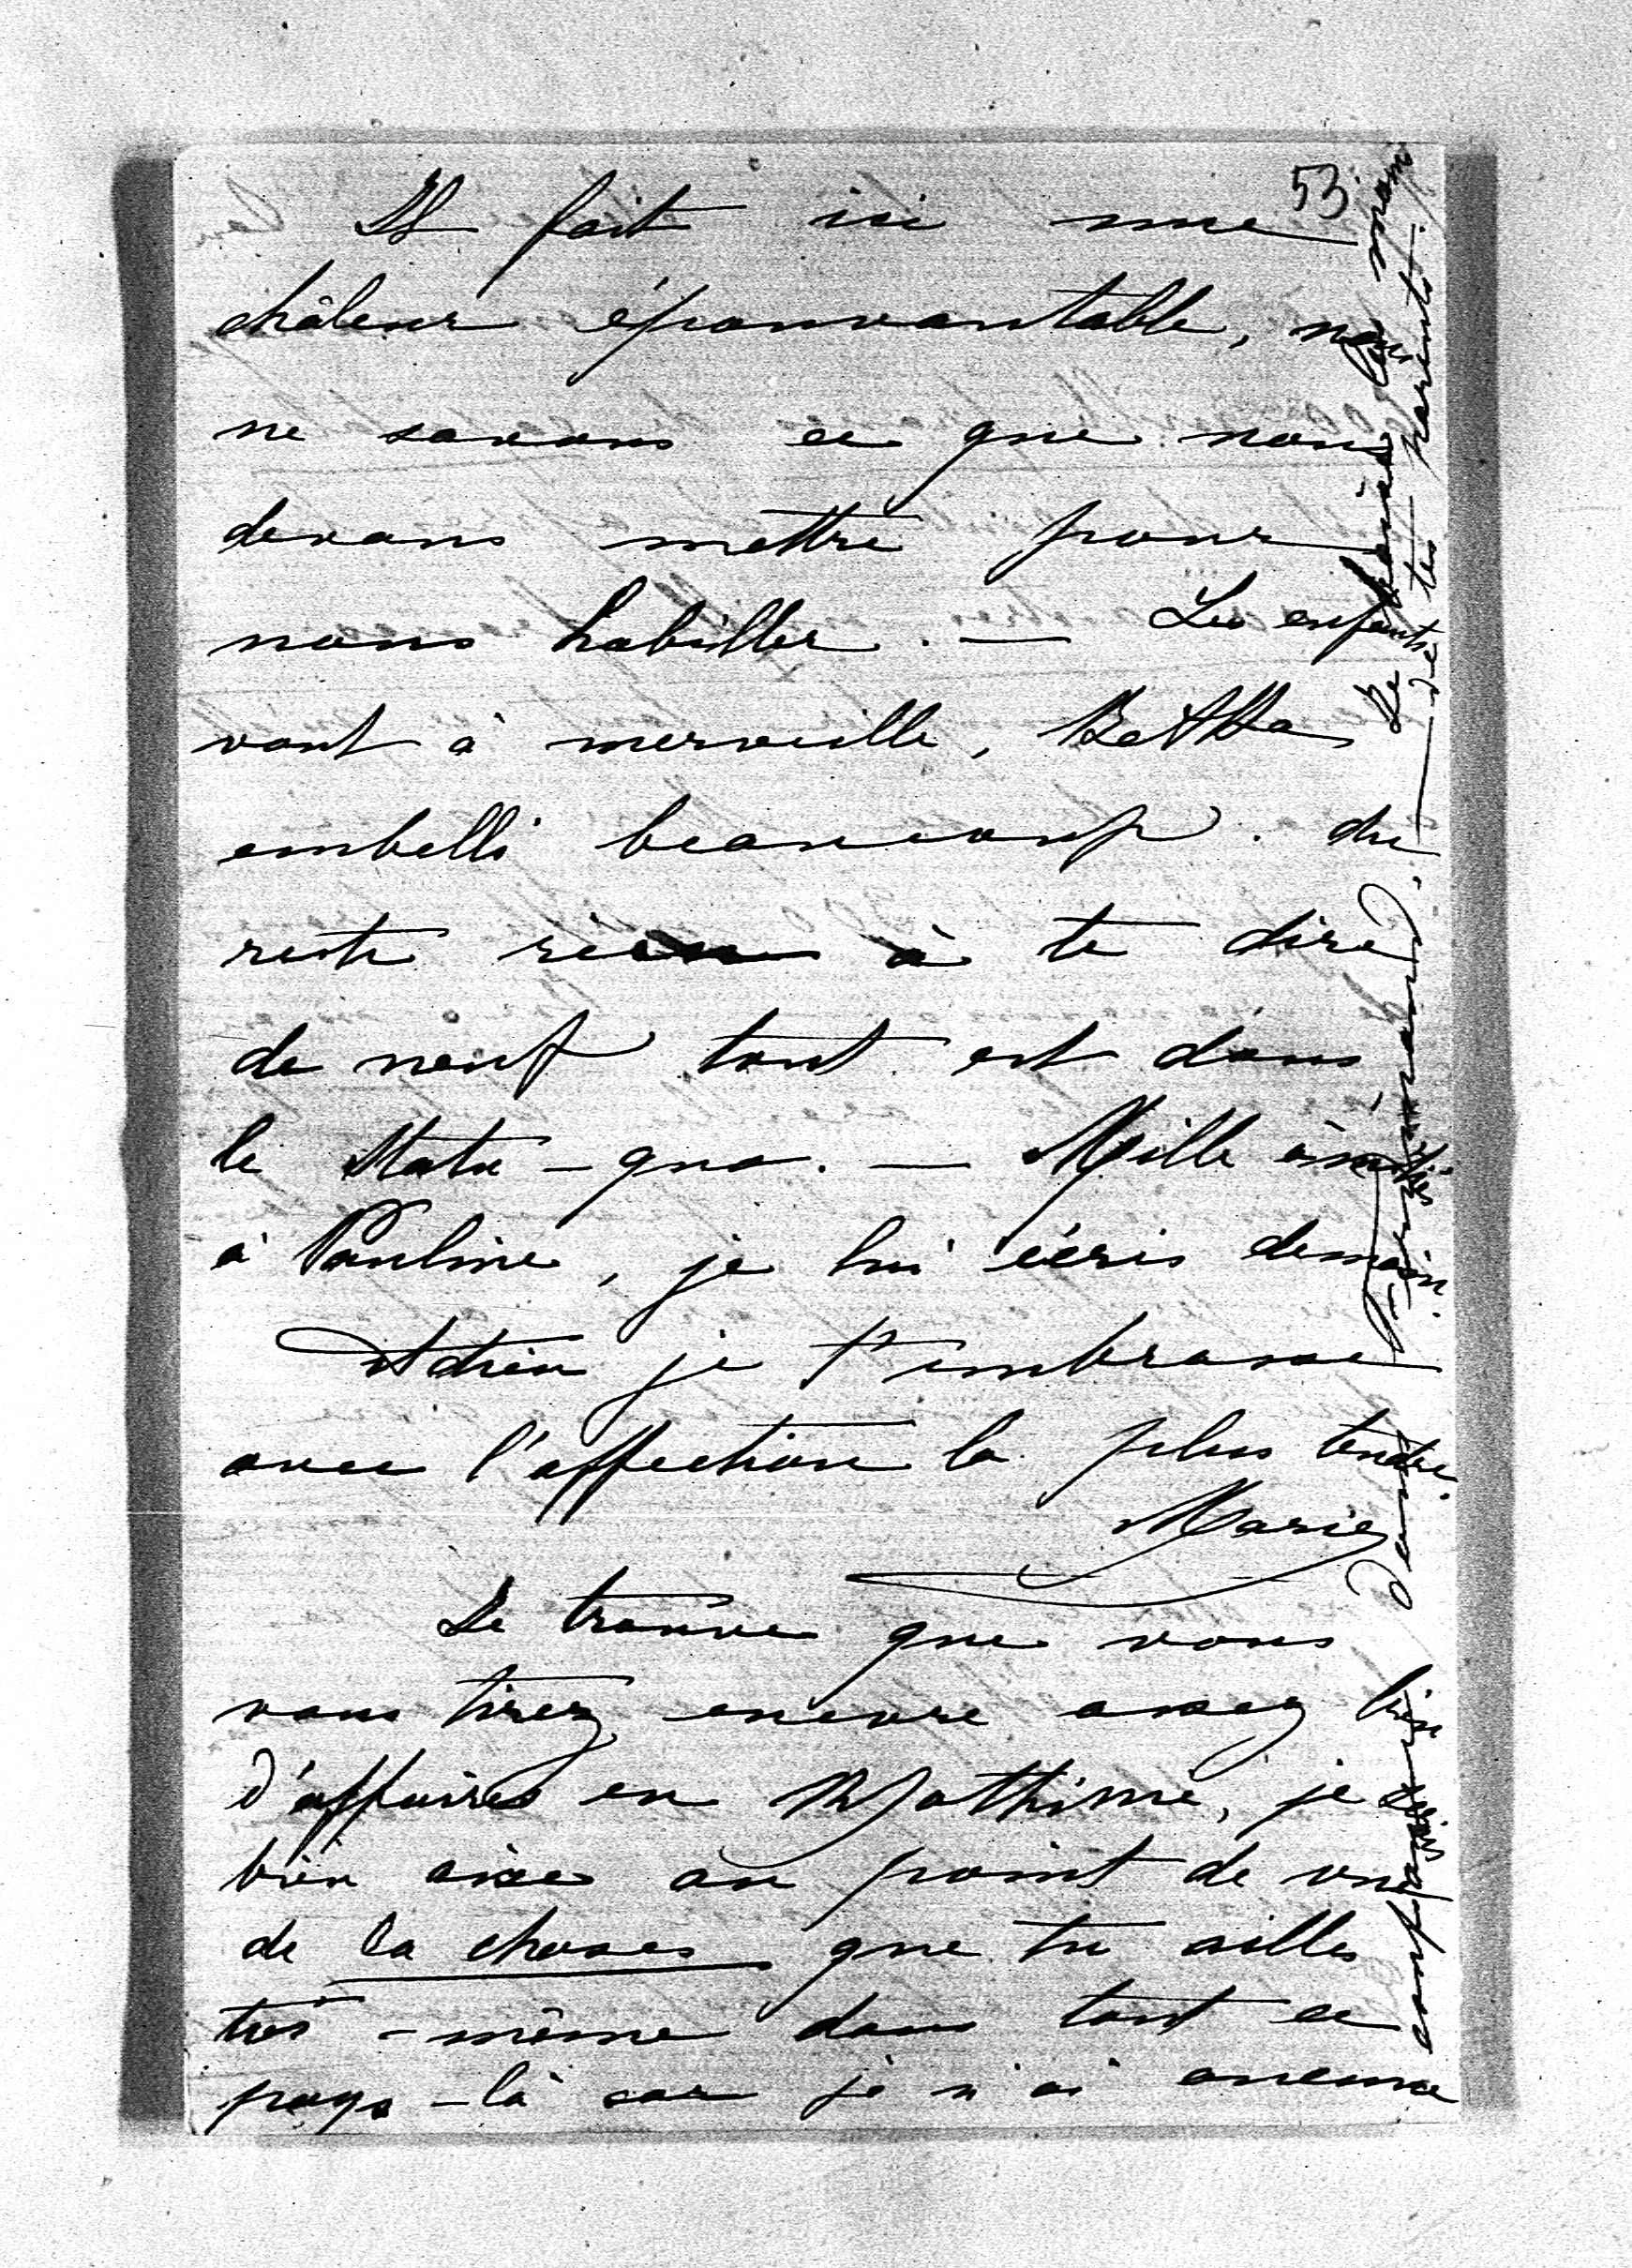 53
Il fait ici une
châleur épouvantable, nous
ne savons ce que nous
devons mettre pour
nous habiller. — Les enfants
vont à merveille, Betha
embelli beaucoup. du
reste rien à te dire
de neuf tout est dans
le Statu-quo. — Mille amitiés
à Pauline, je lui écris demain.
Adieu je t'embrasse
avec l'affection la plus tendre.
Marie
Je trouve que vous
vous tirez encore assez bien
d'affaires en Mathime, je suis
bien aise au point de vue
de la choses que tu ailles
toi-même dans tout ce
pays-là car je n'ai aucune
confiance dans
Je les
de tes parents.